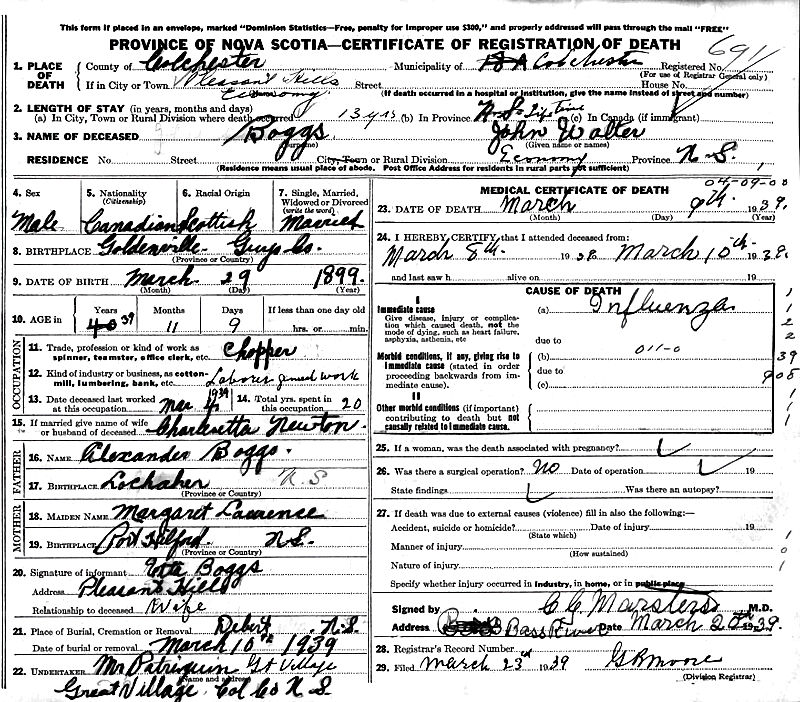 This form if placed in an envelope, marked "Dominion Statistics—Free, penalty for improper use $300," and properly addressed will pass through the mail "FREE"
PROVINCE OF NOVA SCOTIA—CERTIFICATE OF REGISTRATION OF DEATH
691
1. PLACE OF DEATH County of Colchester Municipality of Colchester Registered No.
(For use of Registrar General only)
If in City or Town Pleasant Hills Economy Street House No.
(If death occurred in a hospital or institution, give the name instead of street and number)
2. LENGTH OF STAY (in years, months and days)
(a) In City, Town or Rural Division where death occurred 13 yrs (b) In Province N.S. Lifetime (c) In Canada (if immigrant)
3. NAME OF DECEASED Boggs John Walter
(Surname) (Given name or names)
RESIDENCE No. Street City, Town or Rural Division Economy Province N.S.
(Residence means usual place of abode. Post Office Address for residents in rural parts not sufficient)
4. Sex 5. Nationality (Citizenship) 6. Racial Origin 7. Single, Married, Widowed or Divorced (write the word)
Male Canadian Scottish Married
8. BIRTHPLACE Goldenville Guys Co.
(Province or Country)
9. DATE OF BIRTH March 29 1899
(Month) (Day) (Year)
10. AGE in Years Months Days If less than one day old
40 39 11 9 hrs. or min.
OCCUPATION
11. Trade, profession or kind of work as spinner, teamster, office clerk, etc. Chopper
12. Kind of industry or business, as cotton-mill, lumbering, bank, etc. Labourer general work
13. Date deceased last worked at this occupation Mar 4 1939 14. Total yrs. spent in this occupation 20
15. If married give name of wife or husband of deceased Newton
FATHER
16. NAME Alexander Boggs
17. BIRTHPLACE Lochaber N.S
(Province or Country)
MOTHER
18. MAIDEN NAME Margaret Lawrense
19. BIRTHPLACE Port Hilford N.S.
(Province or Country)
20. Signature of informant Boggs
Address Pleasant Hills
Relationship to deceased Wife
21. Place of Burial, Cremation or Removal Debert N.S.
Date of burial or removal March 10th 1939
22. UNDERTAKER Mr Gt Village
(Name and address)
Great Village Col Co N S
MEDICAL CERTIFICATE OF DEATH
04-09-00
23. DATE OF DEATH March 9th 1939
(Month) (Day) (Year)
24. I HEREBY CERTIFY, that I attended deceased from:
March 8th 1938 March 10th 1939
and last saw h alive on 19
CAUSE OF DEATH
I
Immediate cause (a) Influenza
Give disease, injury or complication which caused death, not the mode of dying, such as heart failure, asphyxia, asthenia, etc
due to
Morbid conditions, if any, giving rise to immediate cause (stated in order proceeding backwards from immediate cause). (b) 011-0
due to
(c)
II
Other morbid conditions (if important) contributing to death but not causally related to immediate cause.
1
1
2
2
39
908
1
1
1
25. If a woman, was the death associated with pregnancy?
26. Was there a surgical operation? NO Date of operation 19
State findings Was there an autopsy?
27. If death was due to external causes (violence) fill in also the following:—
Accident, suicide or homicide? Date of injury 19
(State which)
Manner of injury
(How sustained)
Nature of injury
Specify whether injury occurred in industry, in home, or in public place
1
0
1
Signed by C. G. Marsters M.D.
Address Bass River Date March 20th 1939
28. Registrar's Record Number
29. Filed March 23rd 1939 G R Moore
(Division Registrar)